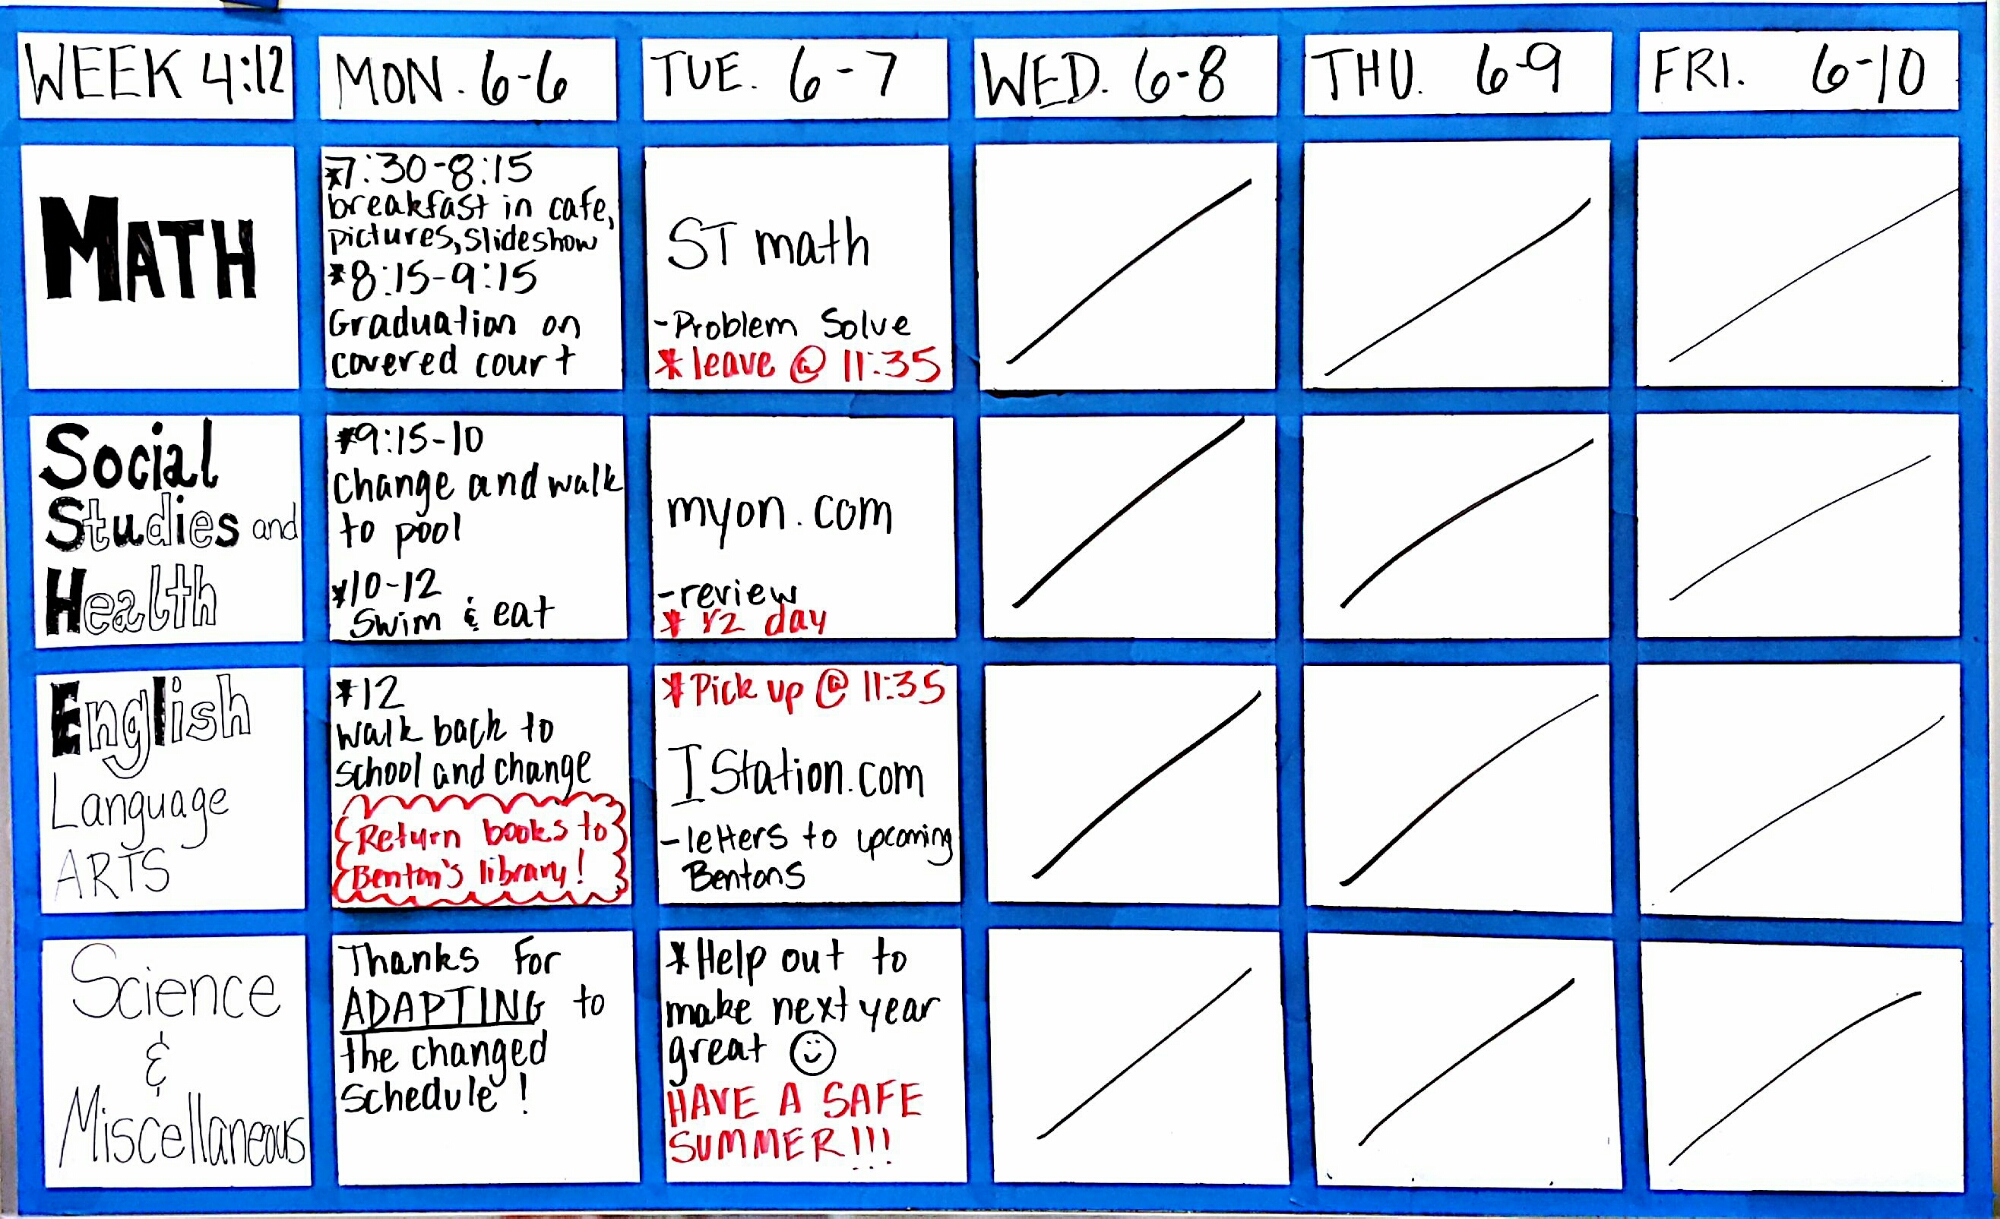 WEEK 4:12
MON. 6-6
TUE. 6-7
WED. 6-8
THU. 6-9
FRI. 6-10
MATH
*7:30-8:15
breakfast in cafe,
pictures, slideshow
*8:15-9:15
Graduation on
covered court
ST math
-Problem Solve
*leave @ 11:35
Social
Studies and
Health
*9:15-10
Change and walk
to pool
*10-12
Swim & eat
myon.com
-review
* 1/2 day
English
Language
ARTS
*12
Walk back to
school and change
Return books to
Benton's library!
*Pick up @ 11:35
IStation.com
-letters to upcoming
Bentons
Science
&
Miscellaneous
Thanks for
ADAPTING to
the changed
schedule!
*Help out to
make next year
great
HAVE A SAFE
SUMMER!!!